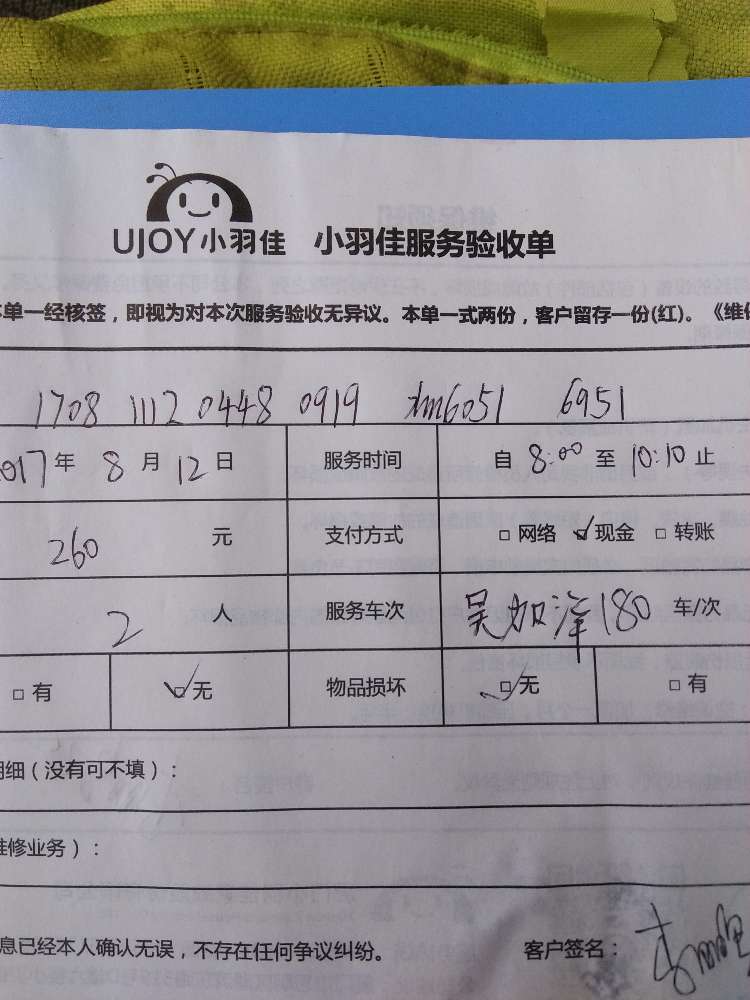 UJOY小羽佳 小羽佳服务验收单
本单一经核签，即视为对本次服务验收无异议。本单一式两份，客户留存一份(红)。《维修
1708 1112 0448 0919 xm6051 6951
2017年8月12日 服务时间 自8:00至10:10止
260元 支付方式 □网络 ☑现金 □转账
2人 服务车次 吴加洋180车/次
□有 ☑无 物品损坏 ☑无 □有
明细（没有可不填）：
维修业务）：
息已经本人确认无误，不存在任何争议纠纷。 客户签名：